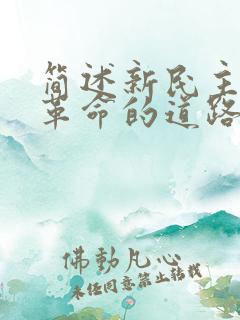 简述新民主
革命的道路
佛動凡心
未经同意禁止转载